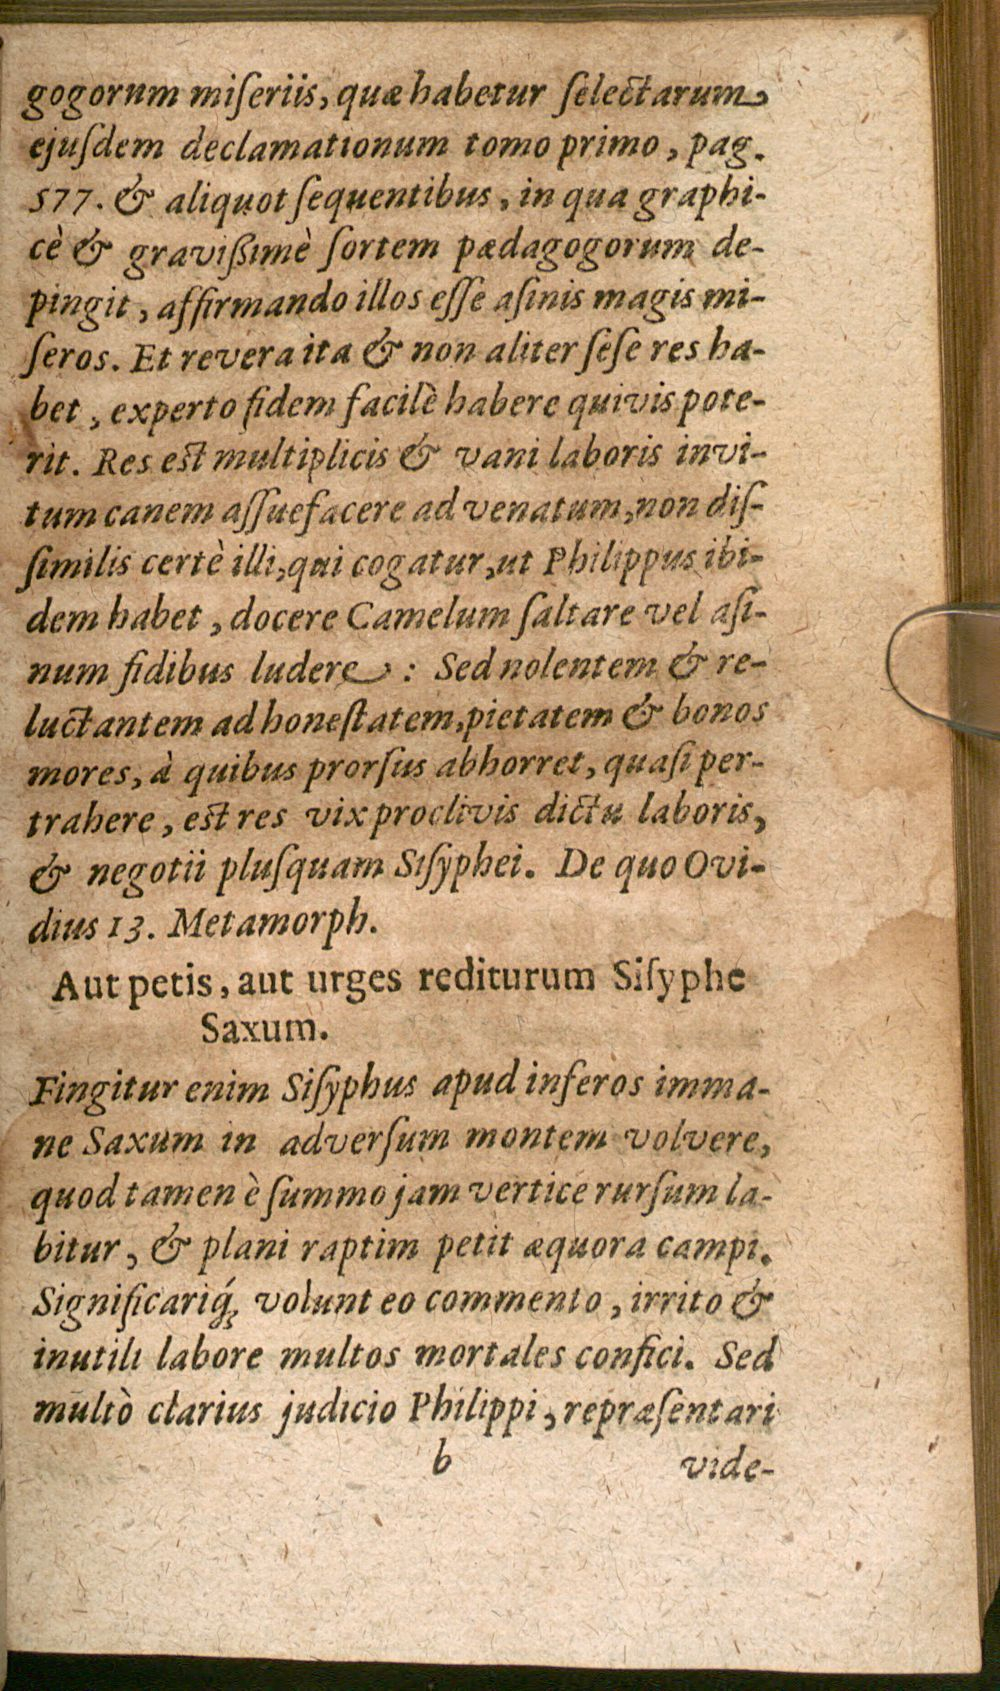 gogorum miſeriis, quæ habetur ſelectarum
ejuſdem declamationum tomo primo, pag.
577. & aliquot ſequentibus, in qua graphi-
cè & gravißimè ſortem pædagogorum de-
pingit, affirmando illos eſſe aſinis magis mi-
ſeros. Et revera ita & non aliter ſeſe res ha-
bet, experto fidem facilè habere quivis pote-
rit. Res est multiplicis & vani laboris invi-
tum canem aſſuefacere ad venatum, non diſ-
ſimilis certè illi, qui cogatur, ut Philippus ibi-
dem habet, docere Camelum ſaltare vel aſi-
num fidibus ludere: Sed nolentem & re-
luctantem ad honeſtatem, pietatem & bonos
mores, à quibus prorſus abhorret, quaſi per-
trahere, est res vix proclivis dictu laboris,
& negotii pluſquam Siſyphei. De quo Ovi-
dius 13. Metamorph.
Aut petis, aut urges rediturum Siſyphe
Saxum.
Fingitur enim Siſyphus apud inferos imma-
ne Saxum in adverſum montem volvere,
quod tamen è ſummo jam vertice rurſum la-
bitur, & plani raptim petit æquora campi.
Significariq́; volunt eo commento, irrito &
inutili labore multos mortales confici. Sed
multò clarius judicio Philippi, repræſentari
b vide-